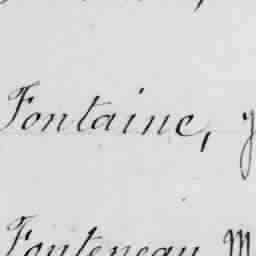 Fontaine, y
Fonteneau M